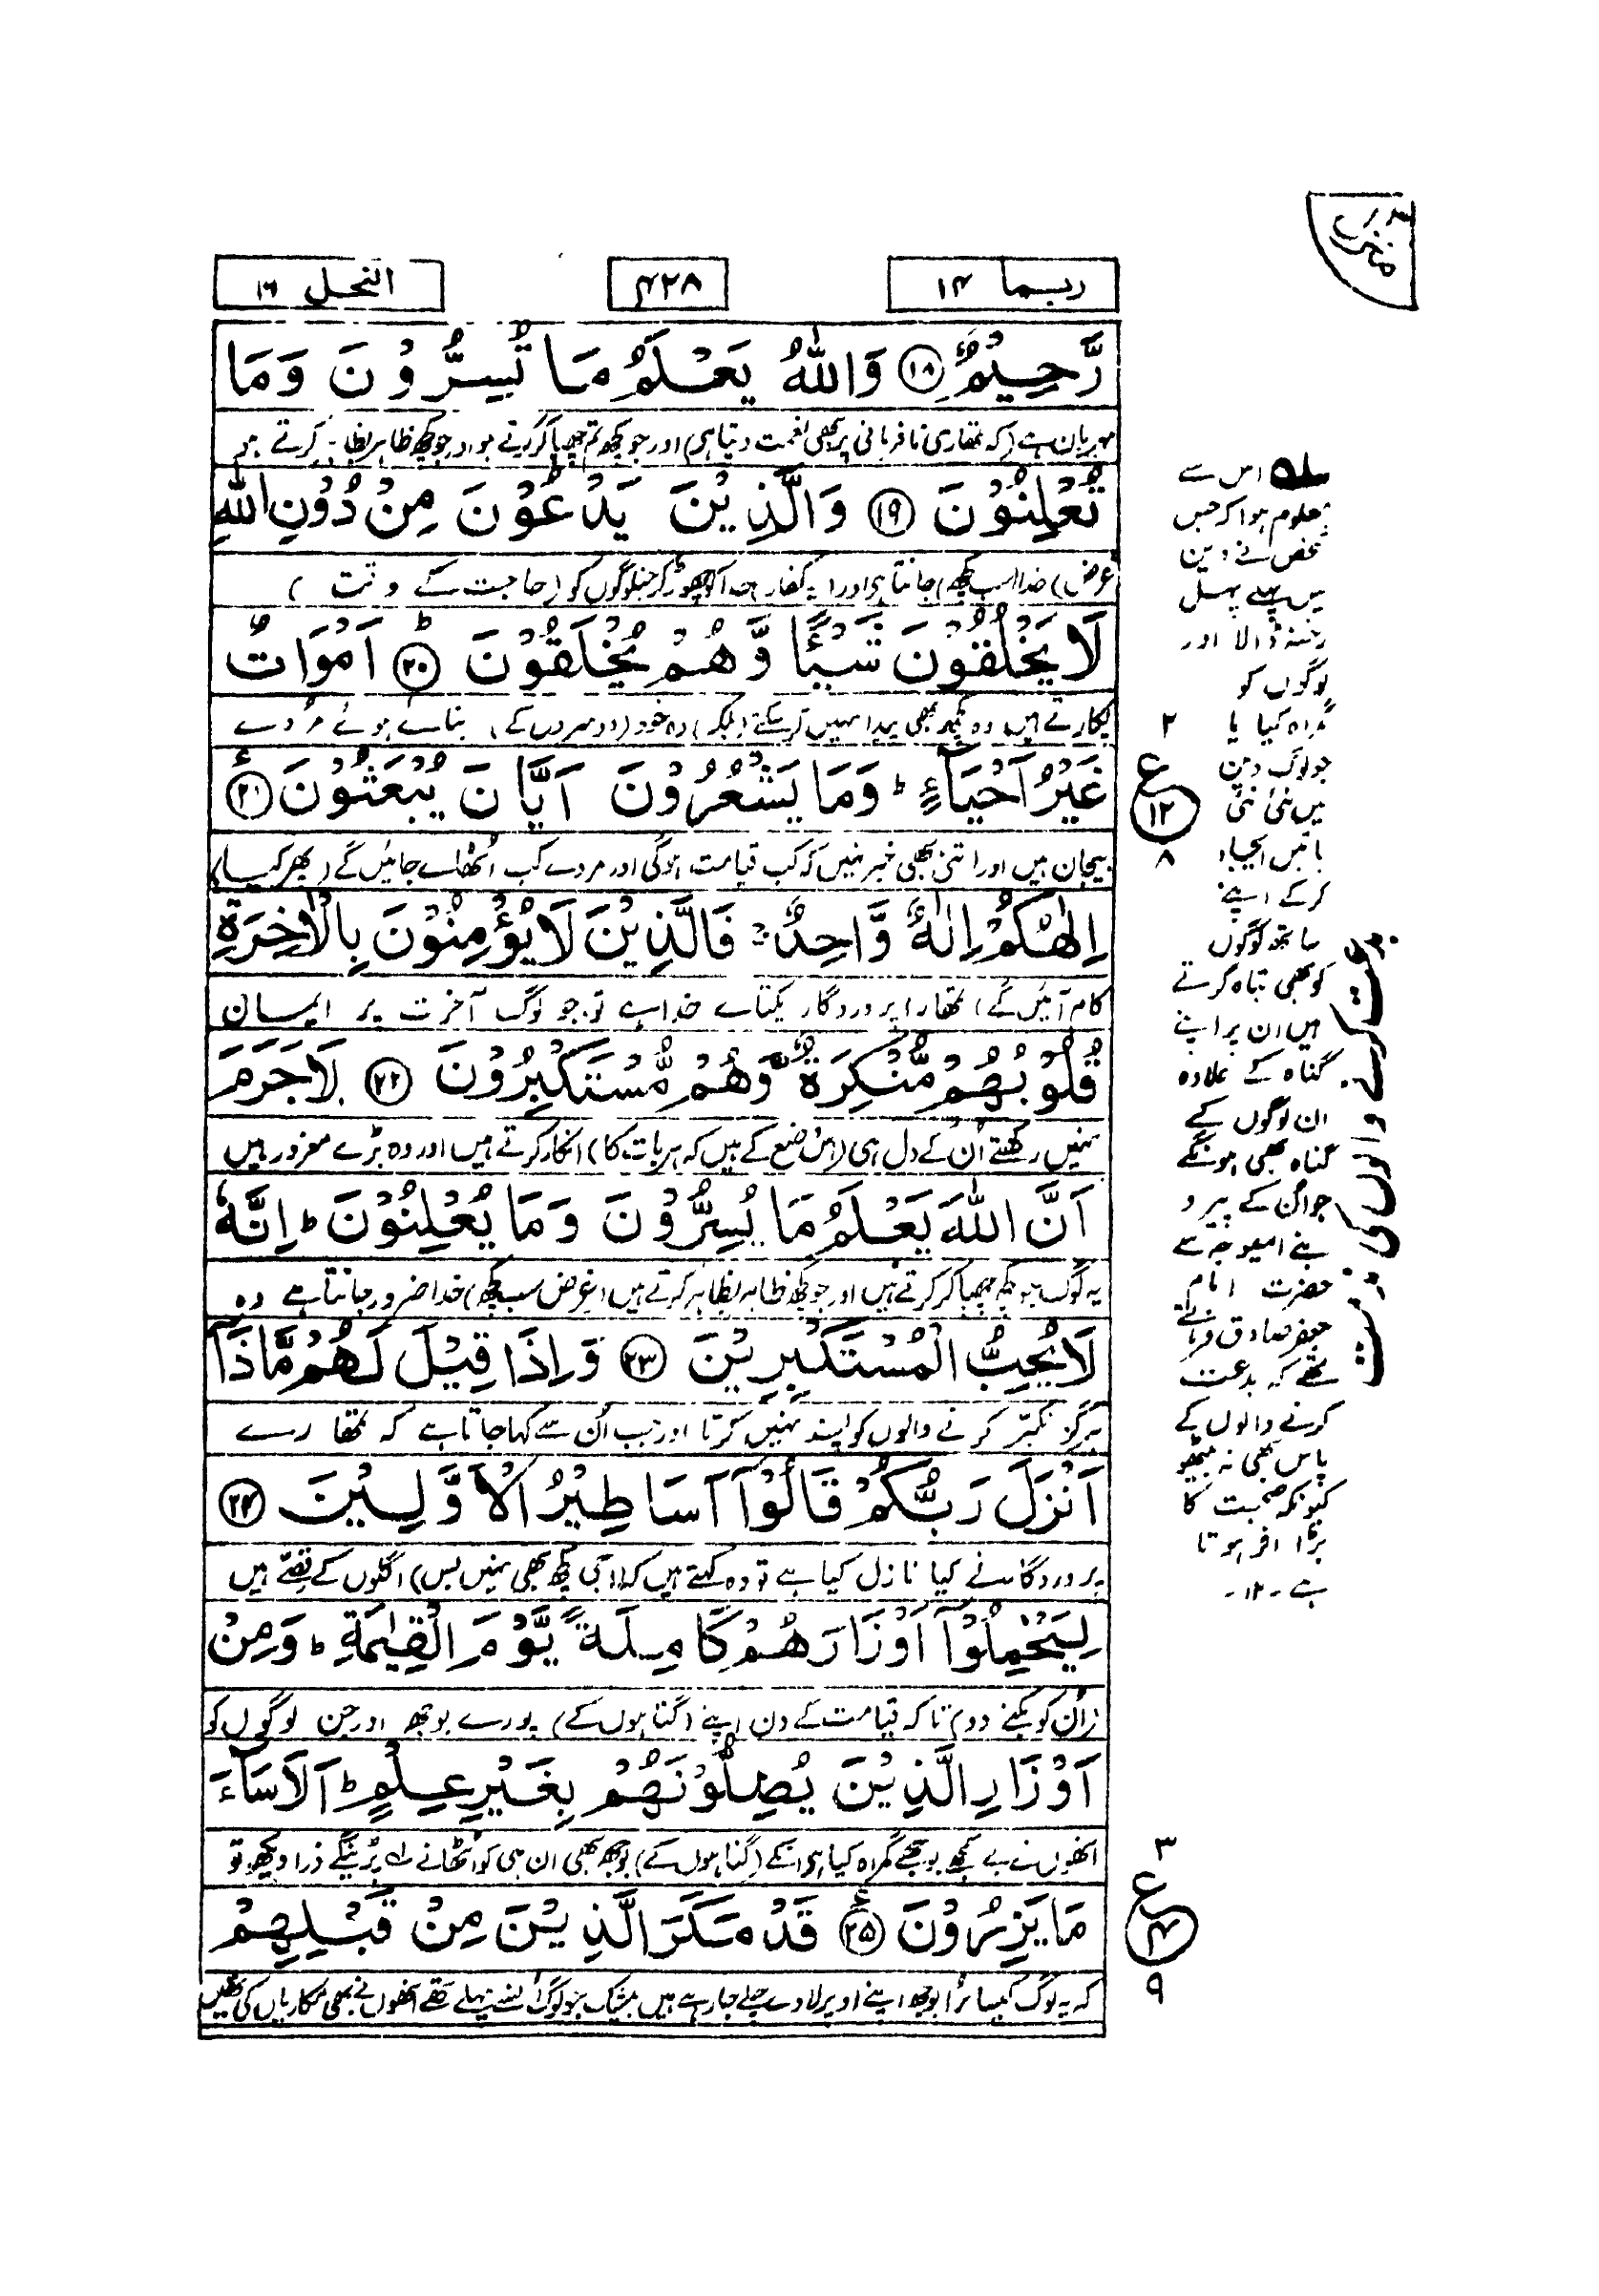 ربما ۱۴
۴۲۸
النحل ۱۶
رَّحِيْمٌ ۝۱۸ وَاللّٰهُ يَعْلَمُ مَا تُسِرُّوْنَ وَمَا
مہربان ہے (کہ تمھاری نافرمانی پر بھی نعمت دیتا ہی) اور جو کچھ تم چھپا کر کرتے ہو اور جو کچھ ظاہر بظاہر کرتے ہو
تُعْلِنُوْنَ ۝۱۹ وَالَّذِيْنَ يَدْعُوْنَ مِنْ دُوْنِ اللّٰهِ
(غرض) خدا (سب کچھ) جانتا ہی اور (یہ کفار) خدا کو چھوڑ کر جن لوگوں کو (حاجت کے وقت)
لَا يَخْلُقُوْنَ شَيْـًٔا وَّهُمْ يُخْلَقُوْنَ ۝۲۰ؕ اَمْوَاتٌ
پکارتے ہیں وہ کچھ بھی پیدا نہیں کر سکتے (بلکہ) وہ خود (دوسروں کے) بنائے ہوئے مردے
غَيْرُ اَحْيَآءٍ ؕ وَمَا يَشْعُرُوْنَ اَيَّانَ يُبْعَثُوْنَ ۝۲۱
بیجان ہیں اور اتنی بھی خبر نہیں کہ کب قیامت ہوگی اور مردے کب اُٹھائے جائیں گے (پھر کیا
اِلٰهُكُمْ اِلٰهٌ وَّاحِدٌ ۚ فَالَّذِيْنَ لَا يُؤْمِنُوْنَ بِالْاٰخِرَةِ
کام آئیں گے) تمھارا پروردگار یکتائے خدا ہے تو جو لوگ آخرت پر ایمان
قُلُوْبُهُمْ مُّنْكِرَةٌ وَّهُمْ مُّسْتَكْبِرُوْنَ ۝۲۲ لَا جَرَمَ
نہیں رکھتے اُن کے دل ہی (اس وضع کے ہیں کہ ہر بات کا) انکار کرتے ہیں اور وہ بڑے مغرور ہیں
اَنَّ اللّٰهَ يَعْلَمُ مَا يُسِرُّوْنَ وَمَا يُعْلِنُوْنَ ؕ اِنَّهٗ
یہ لوگ جو کچھ چھپا کر کرتے ہیں اور جو کچھ ظاہر بظاہر کرتے ہیں (غرض سب کچھ) خدا ضرور جانتا ہے وہ
لَا يُحِبُّ الْمُسْتَكْبِرِيْنَ ۝۲۳ وَاِذَا قِيْلَ لَهُمْ مَّاذَآ
ہرگز تکبّر کرنے والوں کو پسند نہیں کرتا اور جب اُن سے کہا جاتا ہے کہ تمھارے
اَنْزَلَ رَبُّكُمْ قَالُوْٓا اَسَاطِيْرُ الْاَوَّلِيْنَ ۝۲۴
پروردگار نے کیا نازل کیا ہے تو وہ کہتے ہیں کہ (اجی کچھ بھی نہیں بس) اگلوں کے قصّے ہیں
لِيَحْمِلُوْٓا اَوْزَارَهُمْ كَامِلَةً يَّوْمَ الْقِيٰمَةِ ؕ وَمِنْ
(اُن کو بکنے دو) تاکہ قیامت کے دن اپنے (گناہوں کے) پورے بوجھ اور جن لوگوں کو
اَوْزَارِ الَّذِيْنَ يُضِلُّوْنَهُمْ بِغَيْرِ عِلْمٍ ؕ اَلَا سَآءَ
انھوں نے بے سمجھے بوجھے گمراہ کیا ہی انکے (گناہوں کے) بوجھ بھی ان ہی کو اُٹھانے پڑینگے ذرا دیکھو تو
مَا يَزِرُوْنَ ۝۲۵ۧ قَدْ مَكَرَ الَّذِيْنَ مِنْ قَبْلِهِمْ
کہ یہ لوگ کیسا بُرا بوجھ اپنے اوپر لادے چلے جا رہے ہیں بیشک جو لوگ اُنسے پہلے تھے اُنھوں نے بھی مکاریاں کی تھیں
۲
ع
۱۲
۸
۳
ع
۴
۹
۵۱ اس سے
معلوم ہوا کہ جس
شخص نے دین
میں پہلے پہل
رخنہ ڈالا اور
لوگوں کو
گمراہ کیا یا
جو لوگ دین
میں نئی نئی
باتیں ایجاد
کرکے اپنے
ساتھ لوگوں
کو بھی تباہ کرتے
ہیں ان پر اپنے
گناہ کے علاوہ
ان لوگوں کے
گناہ بھی ہونگے
جو اُن کے پیرو
بنے اسیوجہ سے
حضرت امام
جعفر صادق فرماتے
تھے کہ بدعت
کرنے والوں کے
پاس بھی نہ بیٹھو
کیونکہ صحبت کا
بڑا اثر ہوتا
ہے ۔۱۲۔
بدعت کرنے والوں کی مذمت